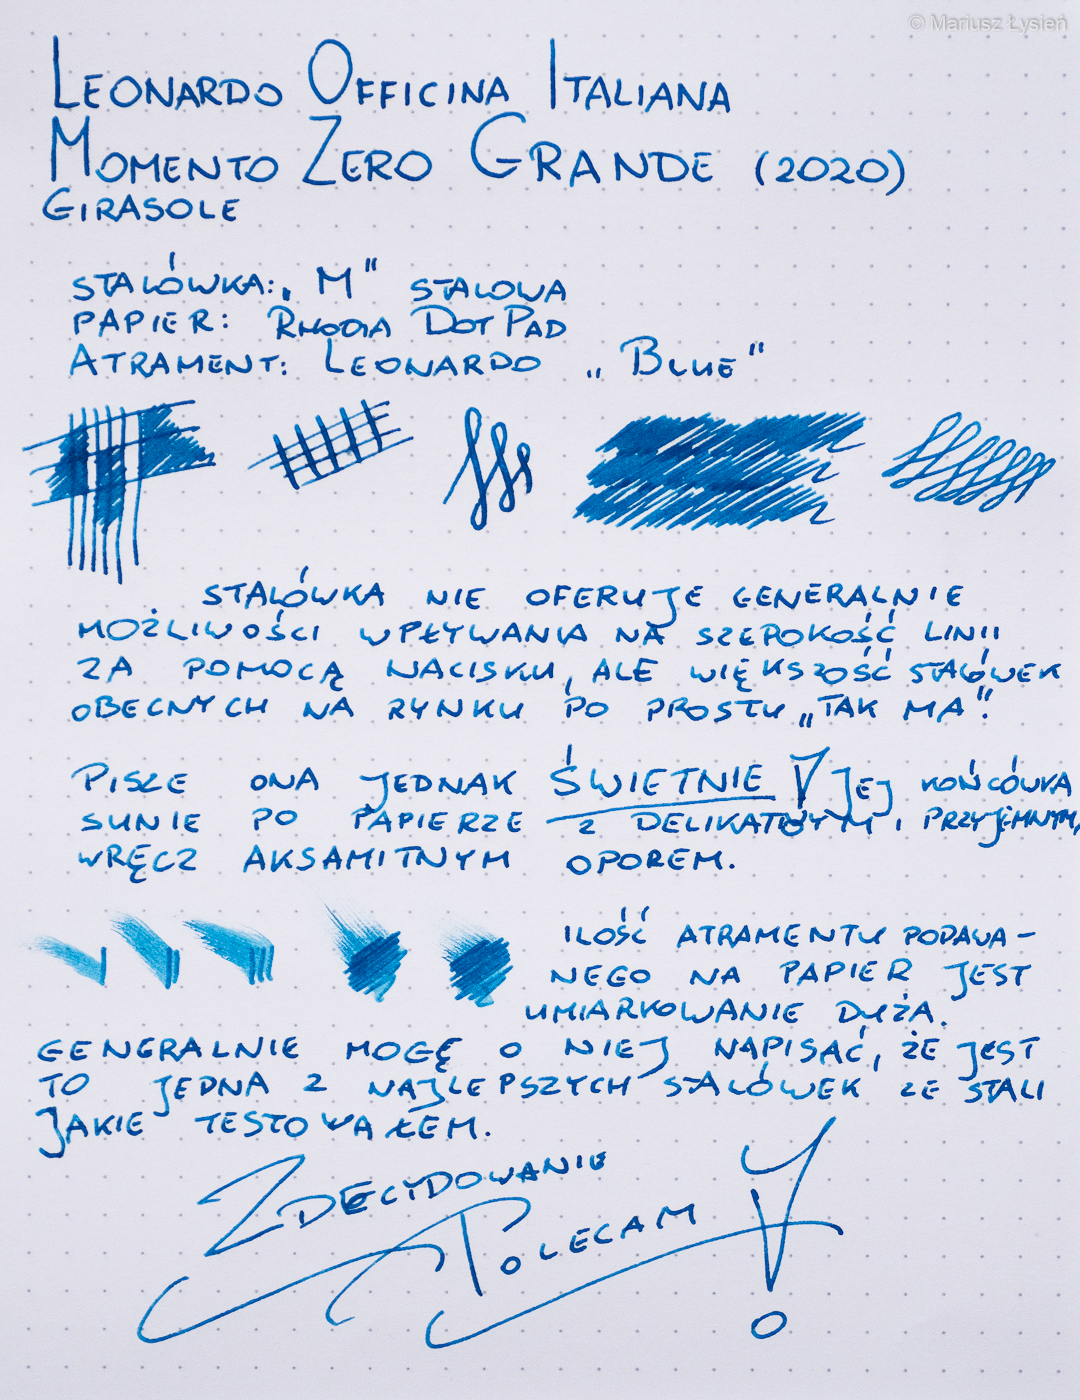 © Mariusz Łysień
LEONARDO OFFICINA ITALIANA
MOMENTO ZERO GRANDE (2020)
GIRASOLE
STALÓWKA: „M” STALOWA
PAPIER: RHODIA DOT PAD
ATRAMENT: LEONARDO „BLUE”
STALÓWKA NIE OFERUJE GENERALNIE
MOŻLIWOŚCI WPŁYWANIA NA SZEROKOŚĆ LINII
ZA POMOCĄ NACISKU, ALE WIĘKSZOŚĆ STALÓWEK
OBECNYCH NA RYNKU PO PROSTU „TAK MA”.
PISZE ONA JEDNAK ŚWIETNIE! JEJ KOŃCÓWKA
SUNIE PO PAPIERZE Z DELIKATNYM I PRZYJEMNYM,
WRĘCZ AKSAMITNYM OPOREM.
ILOŚĆ ATRAMENTU PODAWA-
NEGO NA PAPIER JEST
UMIARKOWANIE DUŻA.
GENERALNIE MOGĘ O NIEJ NAPISAĆ, ŻE JEST
TO JEDNA Z NAJLEPSZYCH STALÓWEK ZE STALI
JAKIE TESTOWAŁEM.
ZDECYDOWANIE
POLECAM!